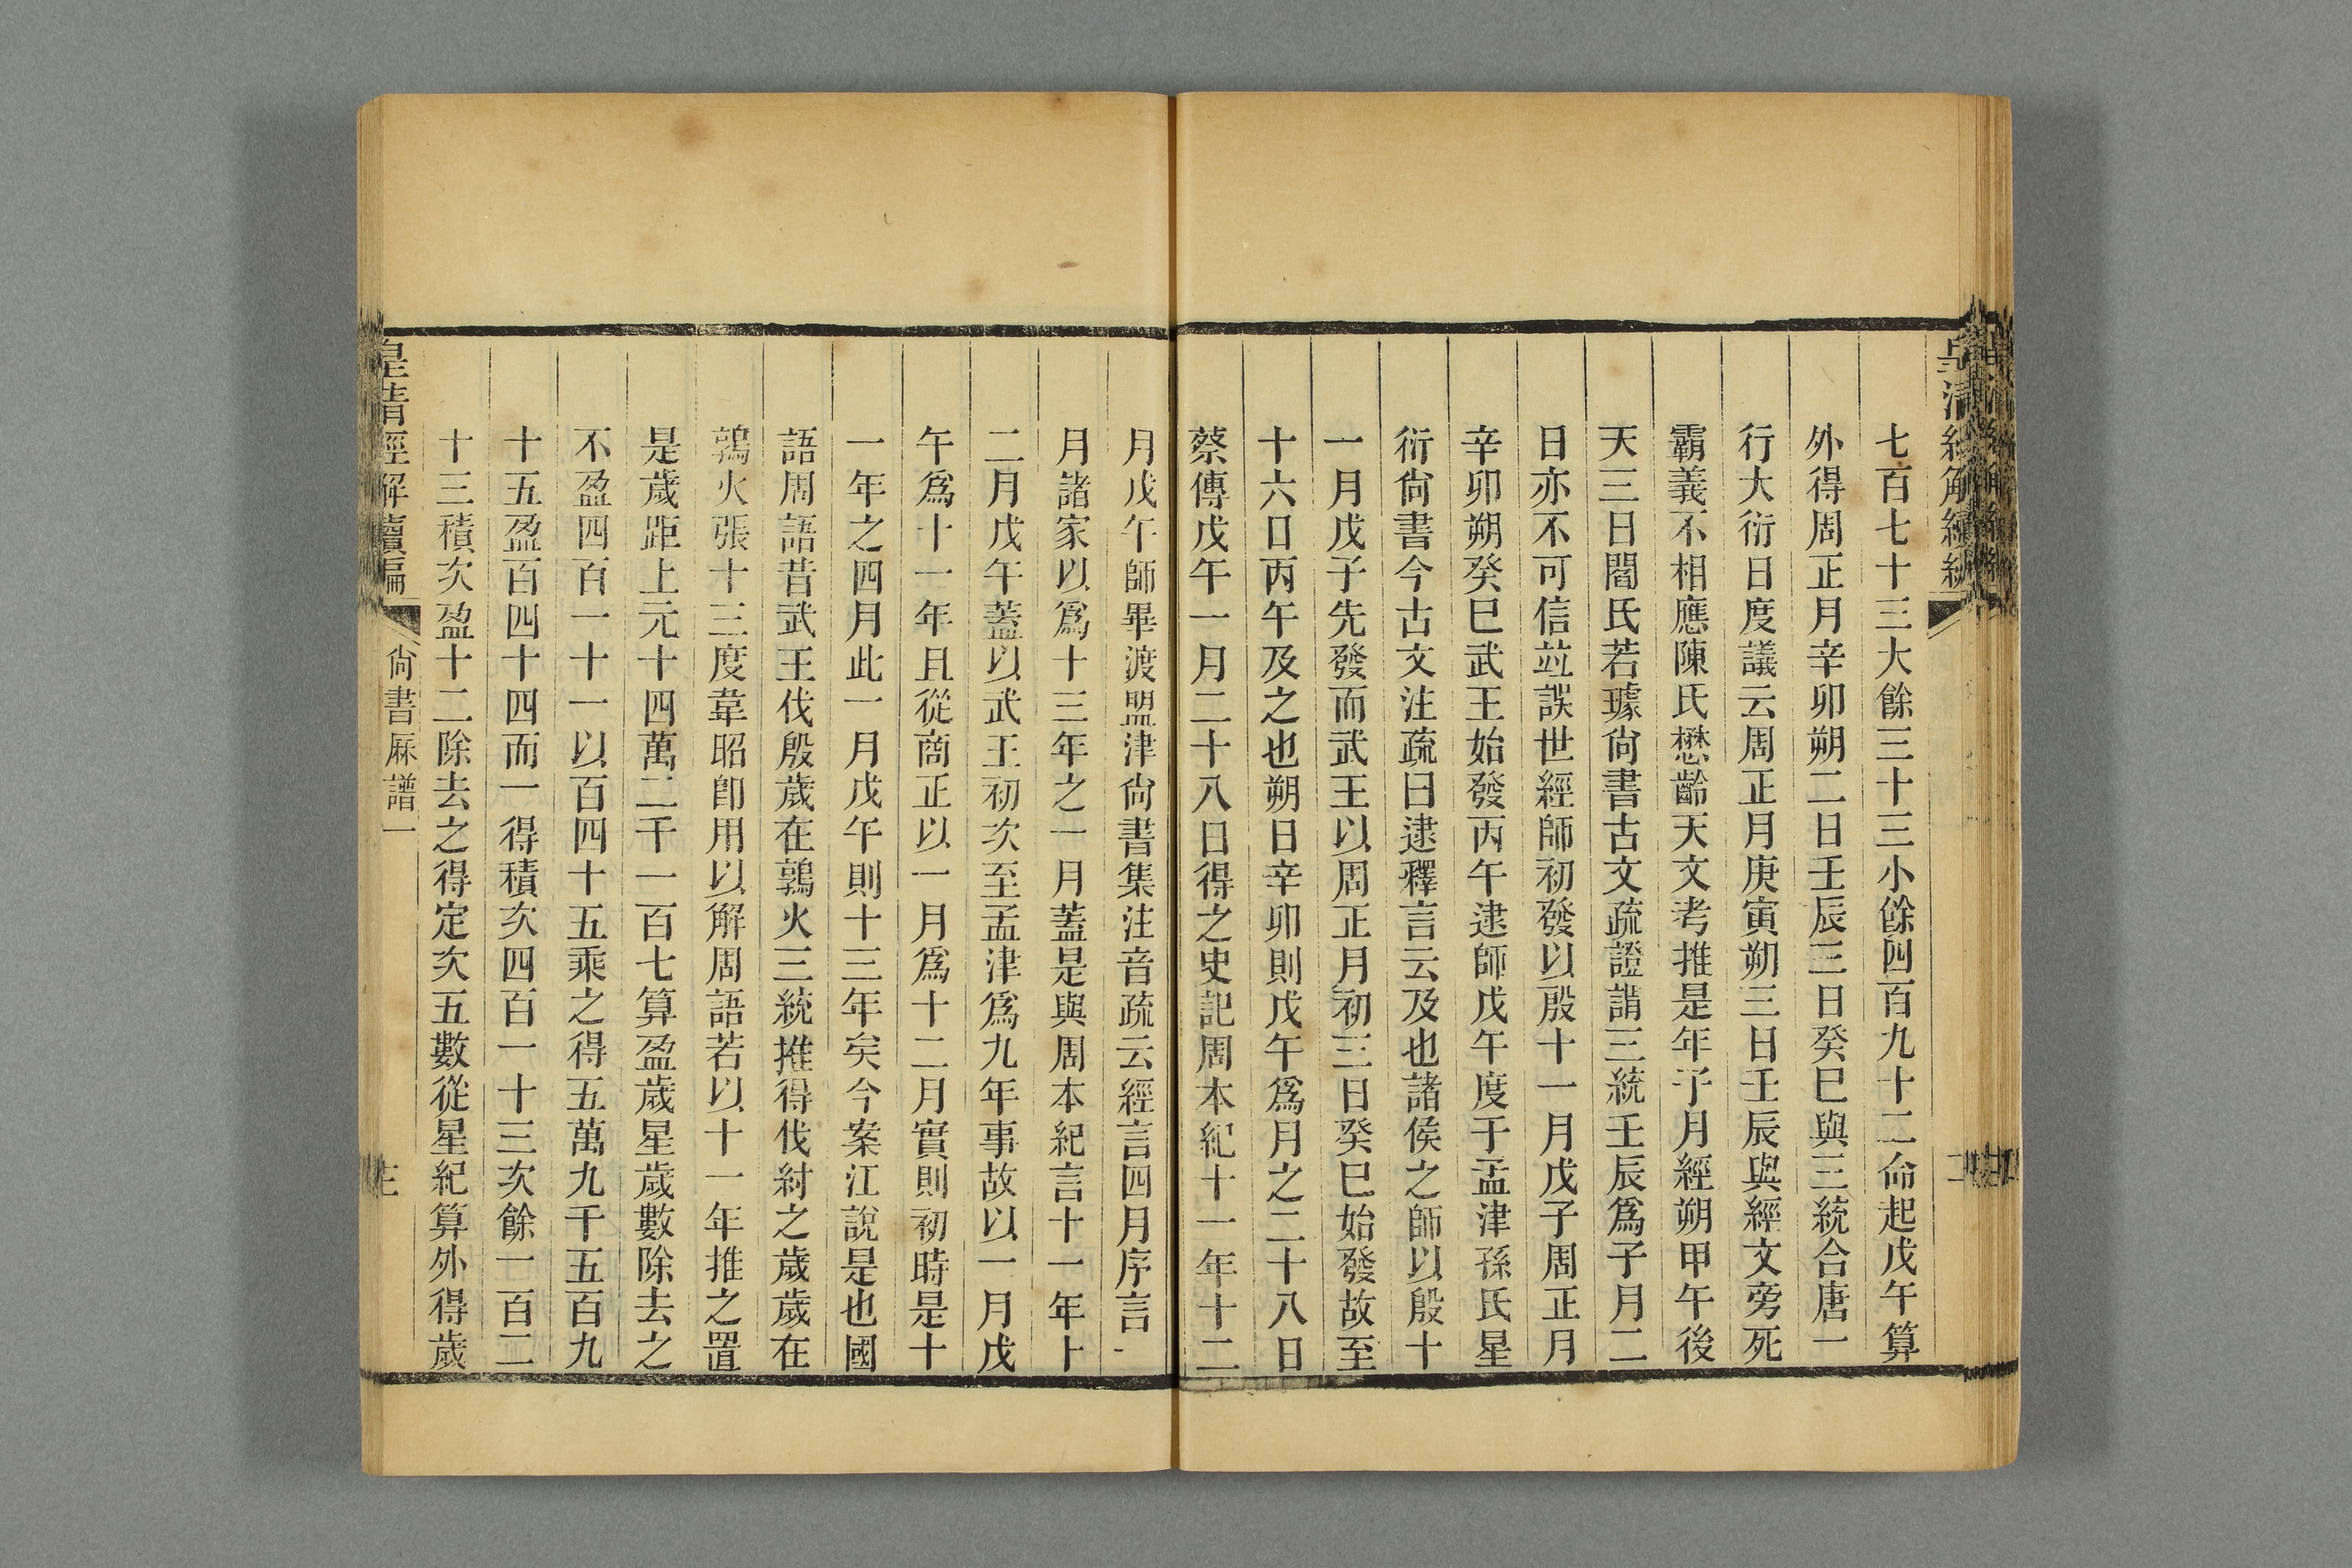 七百七十三大餘三十三小餘四百九十二命起戊午算
外得周正月辛卯朔二日壬辰三日癸巳與三統合唐一
行大衍日度議云周正月庚寅朔三日壬辰與經文旁死
霸義不相應陳氏懋齡天文考推是年子月經朔甲午後
天三日閻氏若璩尙書古文疏證謂三統壬辰爲子月二
日亦不可信竝誤世經師初發以殷十一月戊子周正月
辛卯朔癸巳武王始發丙午逮師戊午度于孟津孫氏星
衍尙書今古文注疏曰逮釋言云及也諸侯之師以殷十
一月戊子先發而武王以周正月初三日癸巳始發故至
十六日丙午及之也朔日辛卯則戊午爲月之二十八日
蔡傳戊午一月二十八日得之史記周本紀十一年十二
月戊午師畢渡盟津尙書集注音疏云經言四月序言一
月諸家以爲十三年之一月蓋是與周本紀言十一年十
二月戊午蓋以武王初次至孟津爲九年事故以一月戊
午爲十一年且從商正以一月爲十二月實則初時是十
一年之四月此一月戊午則十三年矣今案江說是也國
語周語昔武王伐殷歲在鶉火三統推得伐紂之歲歲在
鶉火張十三度韋昭卽用以解周語若以十一年推之置
是歲距上元十四萬二千一百七算盈歲星歲數除去之
不盈四百一十一以百四十五乘之得五萬九千五百九
十五盈百四十四而一得積次四百一十三次餘一百二
十三積次盈十二除去之得定次五數從星紀算外得歲
皇清經解續編 尙書厤譜一